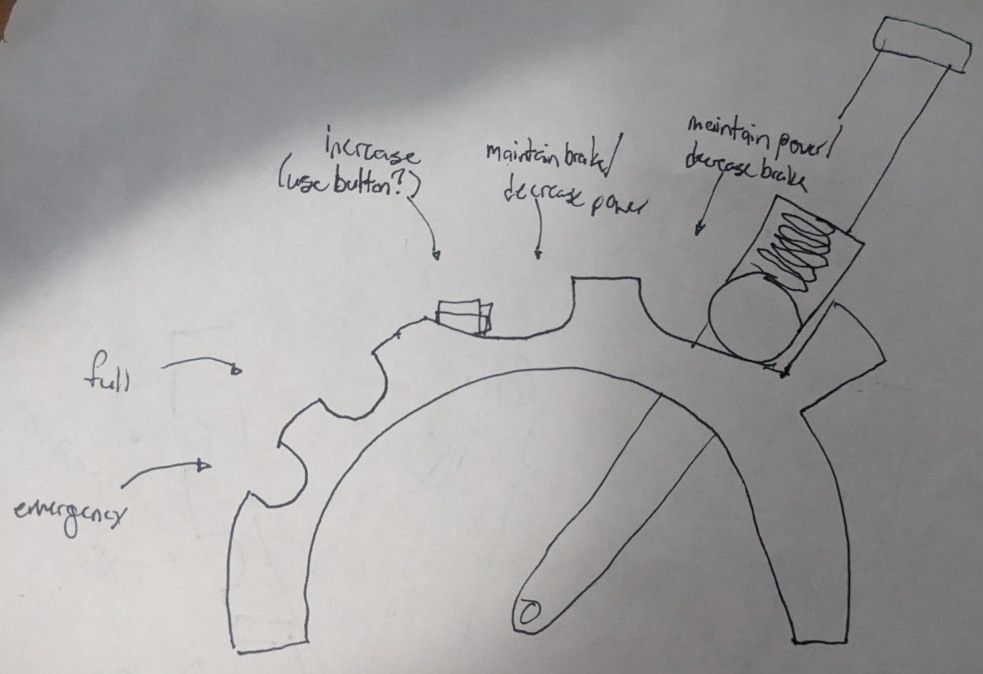 increase
(use button?)
maintain brake/
decrease power
maintain power/
decrease brake
full
emergency